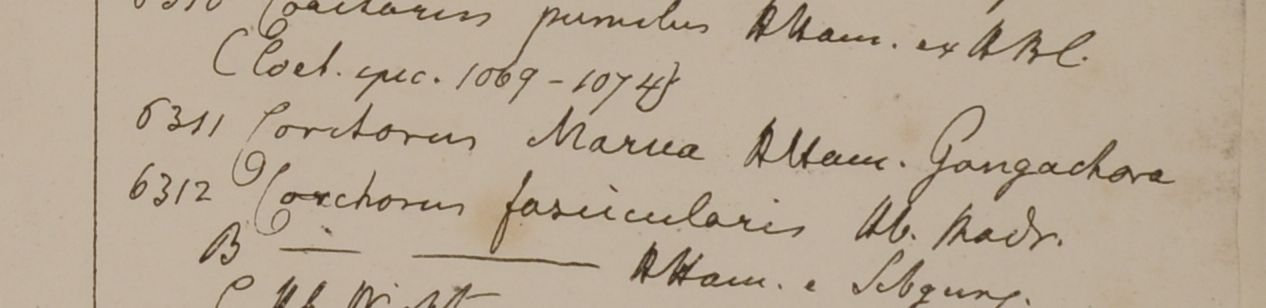 6310 Corchorus pumilus HHam. ex HBC.
(Coel. spec. 1069-1074)
6311 Corchorus Marua HHam. Gongachora
6312 Corchorus fasiicularis Hb. Madr.
B — — HHam. e
C Hb. Wight